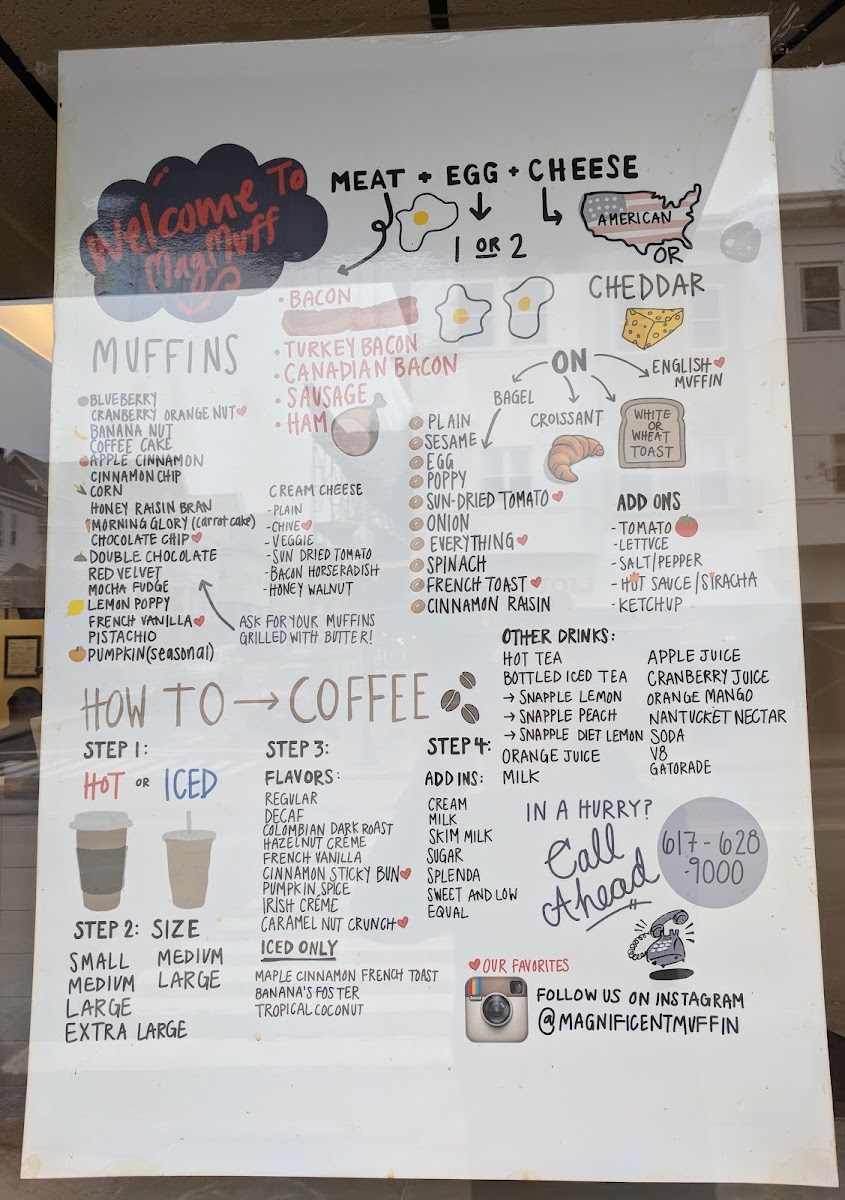 Welcome To
MagMuff
MEAT + EGG + CHEESE
1 OR 2
AMERICAN
OR
CHEDDAR
• BACON
• TURKEY BACON
• CANADIAN BACON
• SAUSAGE
• HAM
ON
BAGEL
CROISSANT
WHITE
OR
WHEAT
TOAST
ENGLISH
MUFFIN
PLAIN
SESAME
EGG
POPPY
SUN-DRIED TOMATO
ONION
EVERYTHING
SPINACH
FRENCH TOAST
CINNAMON RAISIN
ADD ONS
- TOMATO
- LETTUCE
- SALT/PEPPER
- HOT SAUCE/SIRACHA
- KETCHUP
MUFFINS
BLUEBERRY
CRANBERRY ORANGE NUT
BANANA NUT
COFFEE CAKE
APPLE CINNAMON
CINNAMON CHIP
CORN
HONEY RAISIN BRAN
MORNING GLORY (carrot cake)
CHOCOLATE CHIP
DOUBLE CHOCOLATE
RED VELVET
MOCHA FUDGE
LEMON POPPY
FRENCH VANILLA
PISTACHIO
PUMPKIN (seasonal)
CREAM CHEESE
- PLAIN
- CHIVE
- VEGGIE
- SUN DRIED TOMATO
- BACON HORSERADISH
- HONEY WALNUT
ASK FOR YOUR MUFFINS
GRILLED WITH BUTTER!
OTHER DRINKS:
HOT TEA
BOTTLED ICED TEA
→ SNAPPLE LEMON
→ SNAPPLE PEACH
→ SNAPPLE DIET LEMON
ORANGE JUICE
MILK
APPLE JUICE
CRANBERRY JUICE
ORANGE MANGO
NANTUCKET NECTAR
SODA
V8
GATORADE
HOW TO → COFFEE
STEP 1:
HOT OR ICED
STEP 2: SIZE
SMALL
MEDIUM
LARGE
EXTRA LARGE
MEDIUM
LARGE
STEP 3:
FLAVORS:
REGULAR
DECAF
COLOMBIAN DARK ROAST
HAZELNUT CRÈME
FRENCH VANILLA
CINNAMON STICKY BUN
PUMPKIN SPICE
IRISH CRÈME
CARAMEL NUT CRUNCH
ICED ONLY
MAPLE CINNAMON FRENCH TOAST
BANANA'S FOSTER
TROPICAL COCONUT
STEP 4:
ADD INS:
CREAM
MILK
SKIM MILK
SUGAR
SPLENDA
SWEET AND LOW
EQUAL
IN A HURRY?
Call
Ahead
617-628
-9000
OUR FAVORITES
FOLLOW US ON INSTAGRAM
@MAGNIFICENTMUFFIN